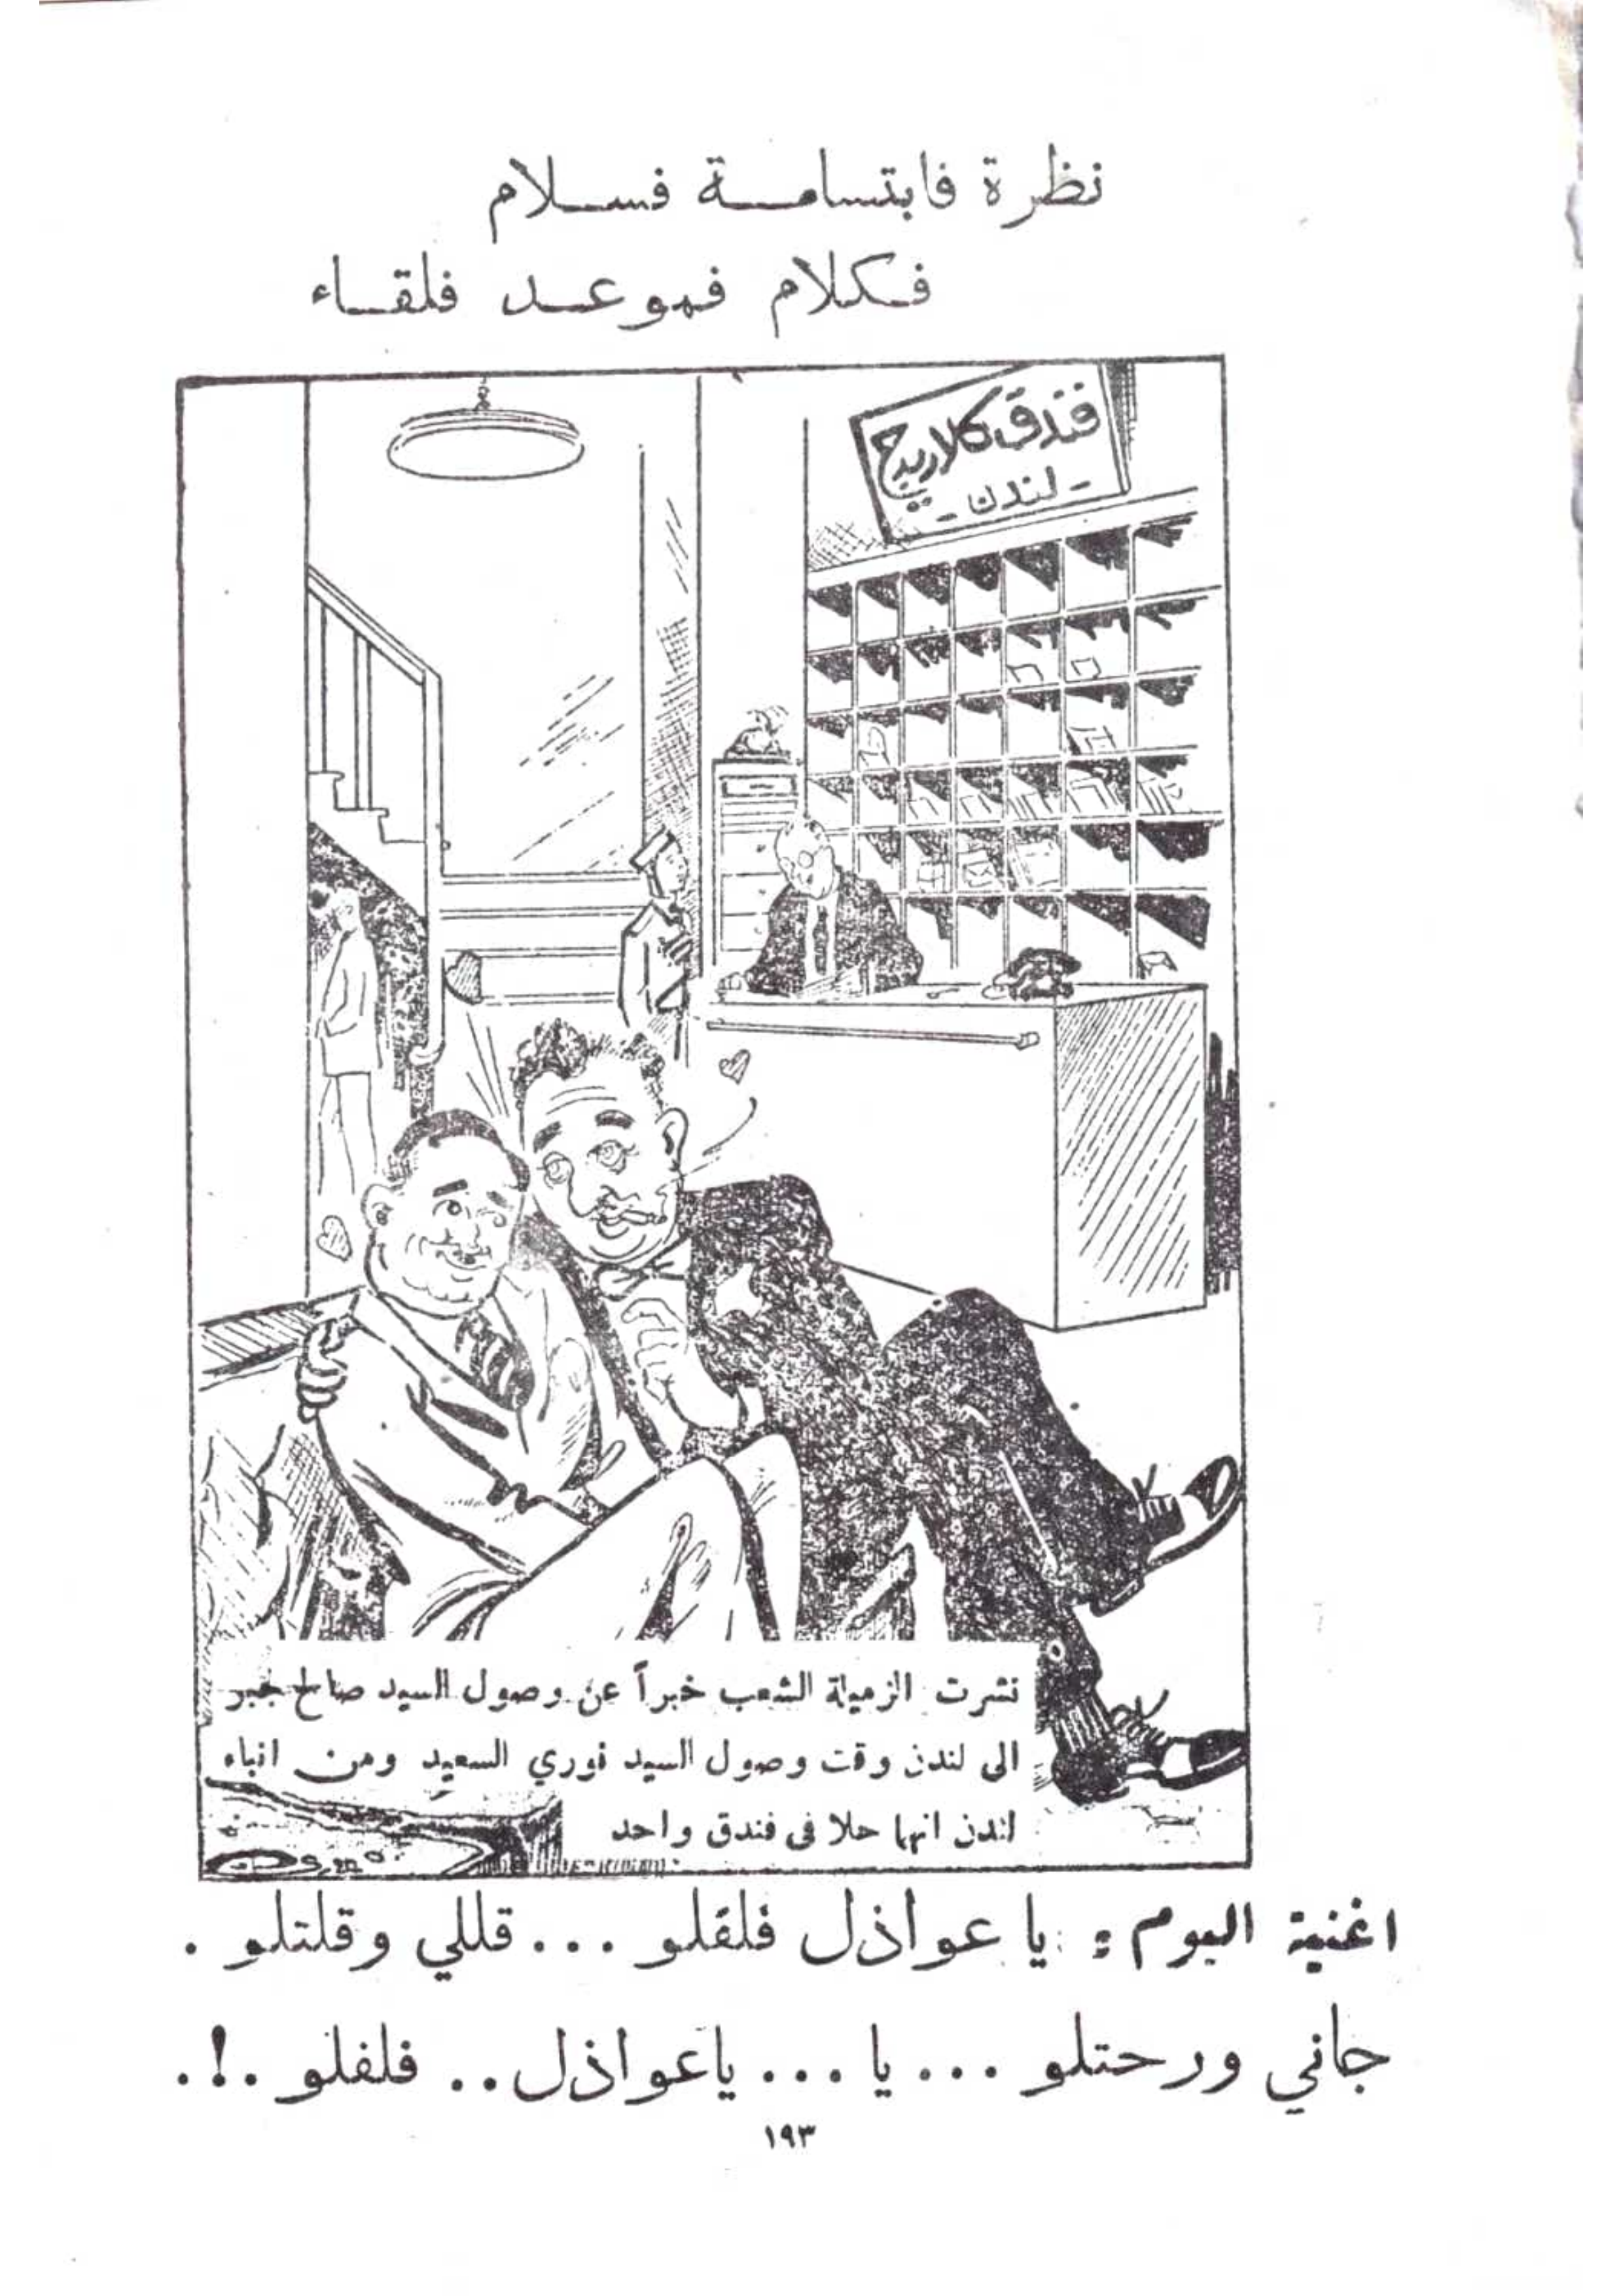 نظرة فابتسامة فسلام
فكلام فموعد فلقاء
فندق كلاريج
- لندن -
نشرت الزميلة الشعب خبراً عن وصول السيد صالح جبر
الى لندن وقت وصول السيد نوري السعيد ومن انباء
لندن انهما حلا في فندق واحد
اغنية اليوم : يا عواذل فلفلو ... قللي وقلتلو .
جاني ورحتلو ... يا ... ياعواذل .. فلفلو .!.
١٩٣